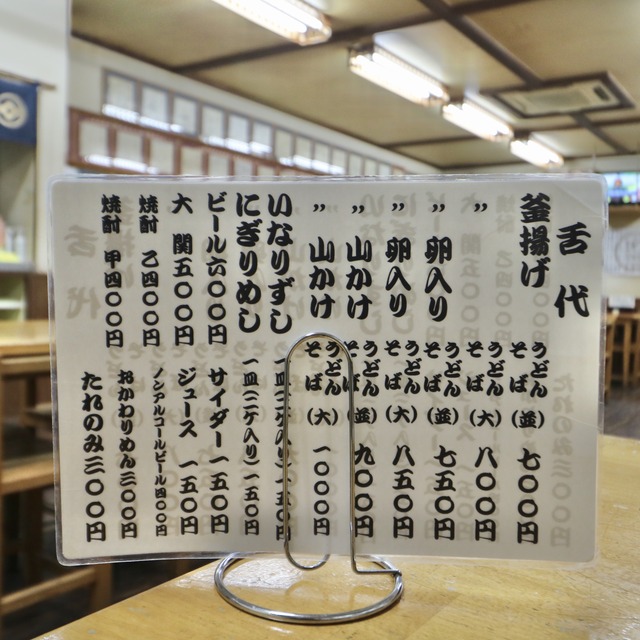 舌代
釜揚げ うどん そば (並) 七〇〇円
〃 うどん そば (大) 八〇〇円
〃 卵入り うどん そば (並) 七五〇円
〃 卵入り うどん そば (大) 八五〇円
〃 山かけ うどん そば (並) 九〇〇円
〃 山かけ うどん そば (大) 一〇〇〇円
いなりずし 一皿(三ケ入り)一五〇円
にぎりめし 一皿(二ケ入り)一五〇円
ビール六〇〇円 サイダー一五〇円
大関五〇〇円 ジュース 一五〇円
焼酎 乙四〇〇円 ノンアルコールビール四〇〇円
焼酎 甲四〇〇円 おかわりめん三〇〇円
たれのみ三〇〇円